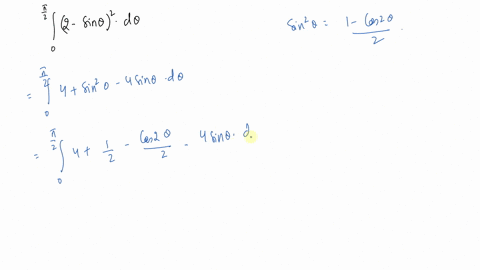 ∫₀^{π/2} (2 - sinθ)² · dθ
sin²θ = (1 - Cos2θ)/2 .
= ∫₀^{π/2} 4 + sin²θ - 4 sinθ · dθ
= ∫₀^{π/2} 4 + 1/2 - Cos2θ/2 - 4 sinθ · d